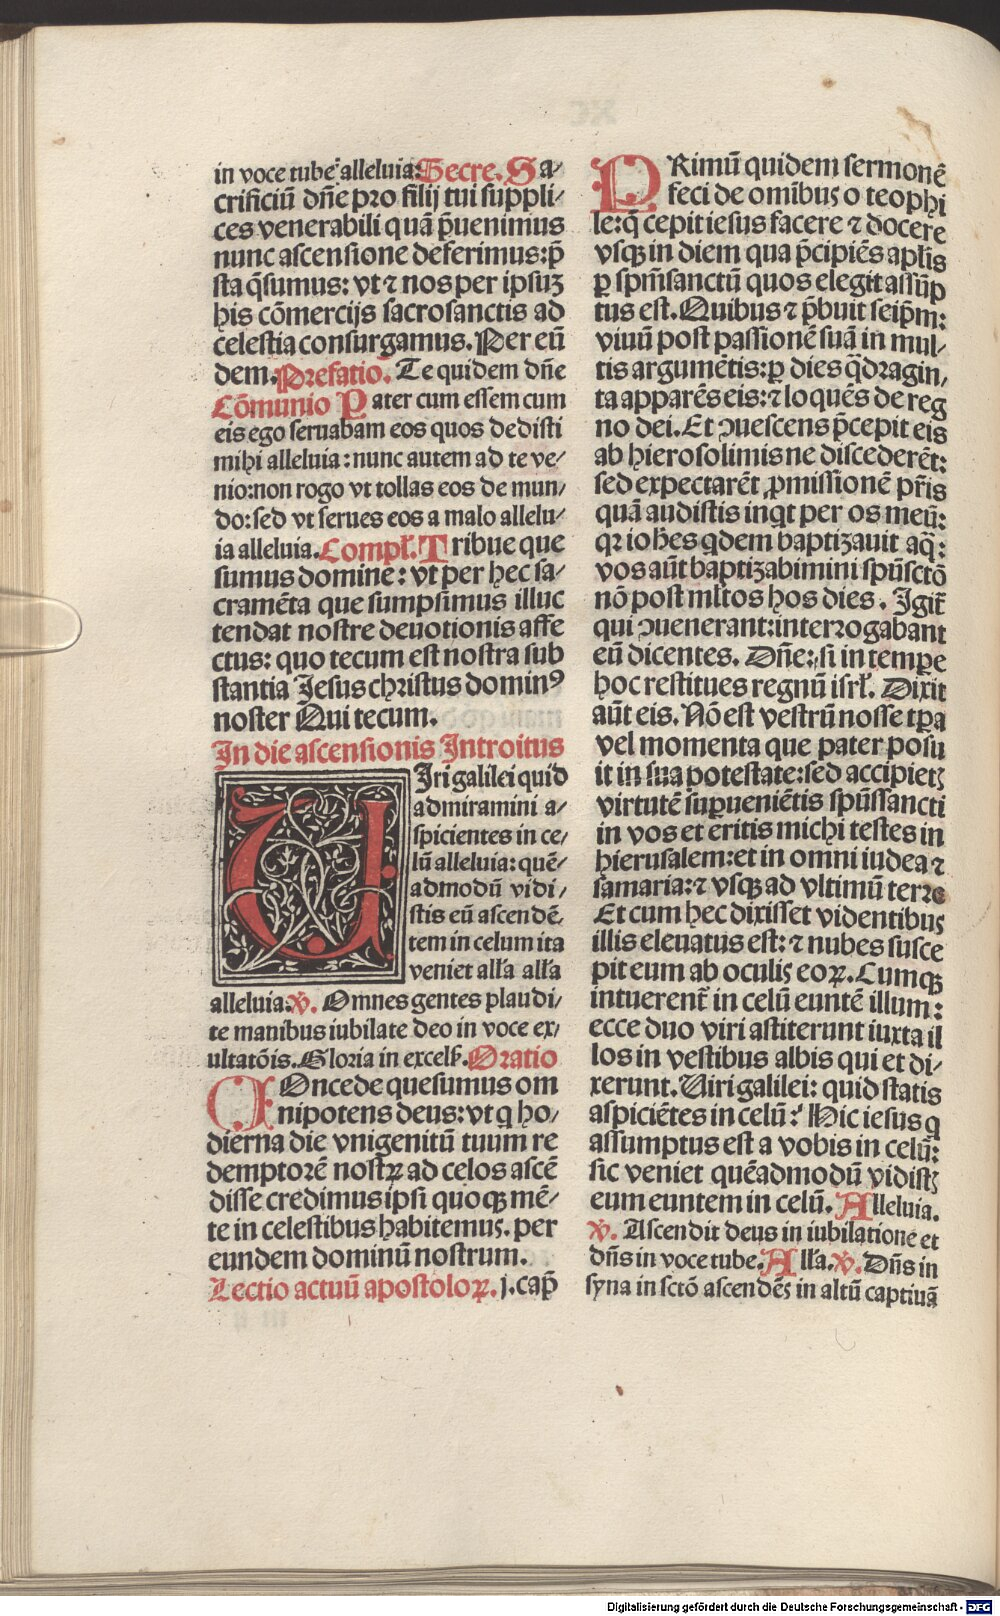 in voce tube alleluia: Secre. Sa⸗
crificiū dn̄e pro filij tui suppli⸗
ces venerabili quā p̄uenimus
nunc ascensione deferimus: p̄
sta q̄sumus: vt ⁊ nos per ipsuꝫ
his cōmercijs sacrosanctis ad
celestia consurgamus. Per eū
dem. Prefatio. Te quidem dn̄e
Cōmunio Pater cum essem cum
eis ego seruabam eos quos dedisti
mihi alleluia: nunc autem ad te ve⸗
nio: non rogo vt tollas eos de mun⸗
do: sed vt serues eos a malo allelu⸗
ia alleluia. Compl̄. Tribue que
sumus domine: vt per hec sa⸗
cramēta que sumpsimus illuc
tendat nostre deuotionis affe
ctus: quo tecum est nostra sub
stantia Jesus christus dominꝰ
noster Qui tecum.
In die ascensionis Introitus
UJri galilei quid
admiramini a⸗
spicientes in ce⸗
lū alleluia: quē⸗
admodū vidi⸗
stis eū ascendē⸗
tem in celum ita
veniet all'a all'a
alleluia. ℣. Omnes gentes plaudi⸗
te manibus iubilate deo in voce ex⸗
ultatōis. Gloria in excels̄. Oratio
COncede quesumus om
nipotens deus: vt q ho⸗
dierna die vnigenitū tuum re
demptorē nostrꝝ ad celos ascē
disse credimus ipsi quoqꝫ mē⸗
te in celestibus habitemus. per
eundem dominū nostrum.
Lectio actuū apostoloꝝ. j. cap̄
PRimū quidem sermonē
feci de omībus o teophi
le: q̄ cepit iesus facere ⁊ docere
vsqꝫ in diem qua p̄cipiēs apl̄is
ꝑ spm̄sanctū quos elegit assūp
tus est. Quibus ⁊ p̄buit seip̄m:
viuū post passionē suā in mul⸗
tis argumētis: ꝑ dies q̄dragin⸗
ta apparēs eis: ⁊ loquēs de reg
no dei. Et ꝯuescens p̄cepit eis
ab hierosolimis ne discederēt:
sed expectarēt ꝓmissionē pr̄is
quā audistis inqt per os meū:
qꝛ iohēs qdem baptizauit aq̄:
vos aūt baptizabimini spūsctō
nō post ml̄tos hos dies. Igit̄
qui ꝯuenerant: interrogabant
eū dicentes. Dn̄e: si in tempe
hoc restitues regnū isrl̄. Dixit
aūt eis. Nō est vestrū nosse tpa
vel momenta que pater posu
it in sua potestate: sed accipietꝫ
virtutē suꝑueniētis spūssancti
in vos et eritis michi testes in
hierusalem: et in omni iudea ⁊
samaria: ⁊ vsqꝫ ad vltimū terre
Et cum hec dixisset videntibus
illis eleuatus est: ⁊ nubes susce
pit eum ab oculis eoꝝ. Cumqꝫ
intuerent̄ in celū euntē illum:
ecce duo viri astiterunt iuxta il
los in vestibus albis qui et di⸗
xerunt. Uiri galilei: quid statis
aspiciētes in celū: Hic iesus q
assumptus est a vobis in celū:
sic veniet quēadmodū vidistꝫ
eum euntem in celū. Alleluia.
℣. Ascendit deus in iubilatione et
dn̄s in voce tube. All'a. ℣. Dn̄s in
syna in sctō ascendēs in altū captiuā
Digitalisierung gefördert durch die Deutsche Forschungsgemeinschaft - DFG